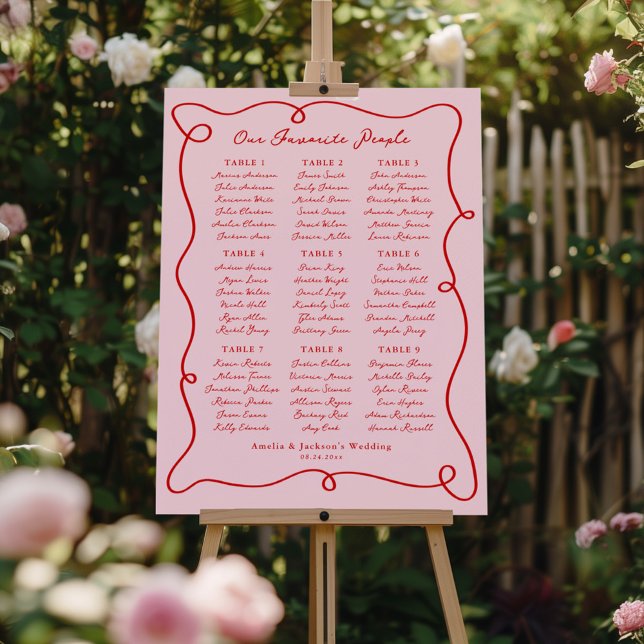 Our Favorite People
TABLE 1 TABLE 2 TABLE 3
Marius Anderson James Smith John Anderson
Julie Anderson Emily Johnson Ashley Thompson
Karianne White Michael Brown Christopher White
Julie Clarkson Sarah Davis Amanda Martinez
Amelia Clarkson David Wilson Matthew Garcia
Jackson Ames Jessica Miller Laura Robinson
TABLE 4 TABLE 5 TABLE 6
Andrew Harris Brian King Eric Nelson
Megan Lewis Heather Wright Stephanie Hill
Joshua Walker Daniel Lopez Nathan Baker
Nicole Hall Kimberly Scott Samantha Campbell
Ryan Allen Tyler Adams Brandon Mitchell
Rachel Young Brittany Green Angela Perez
TABLE 7 TABLE 8 TABLE 9
Kevin Roberts Justin Collins Benjamin Flores
Melissa Turner Victoria Morris Michelle Bailey
Jonathan Phillips Austin Stewart Dylan Rivera
Rebecca Parker Allison Rogers Erin Hughes
Jason Evans Zachary Reed Adam Richardson
Kelly Edwards Amy Cook Hannah Russell
Amelia & Jackson's Wedding
08.24.20xx